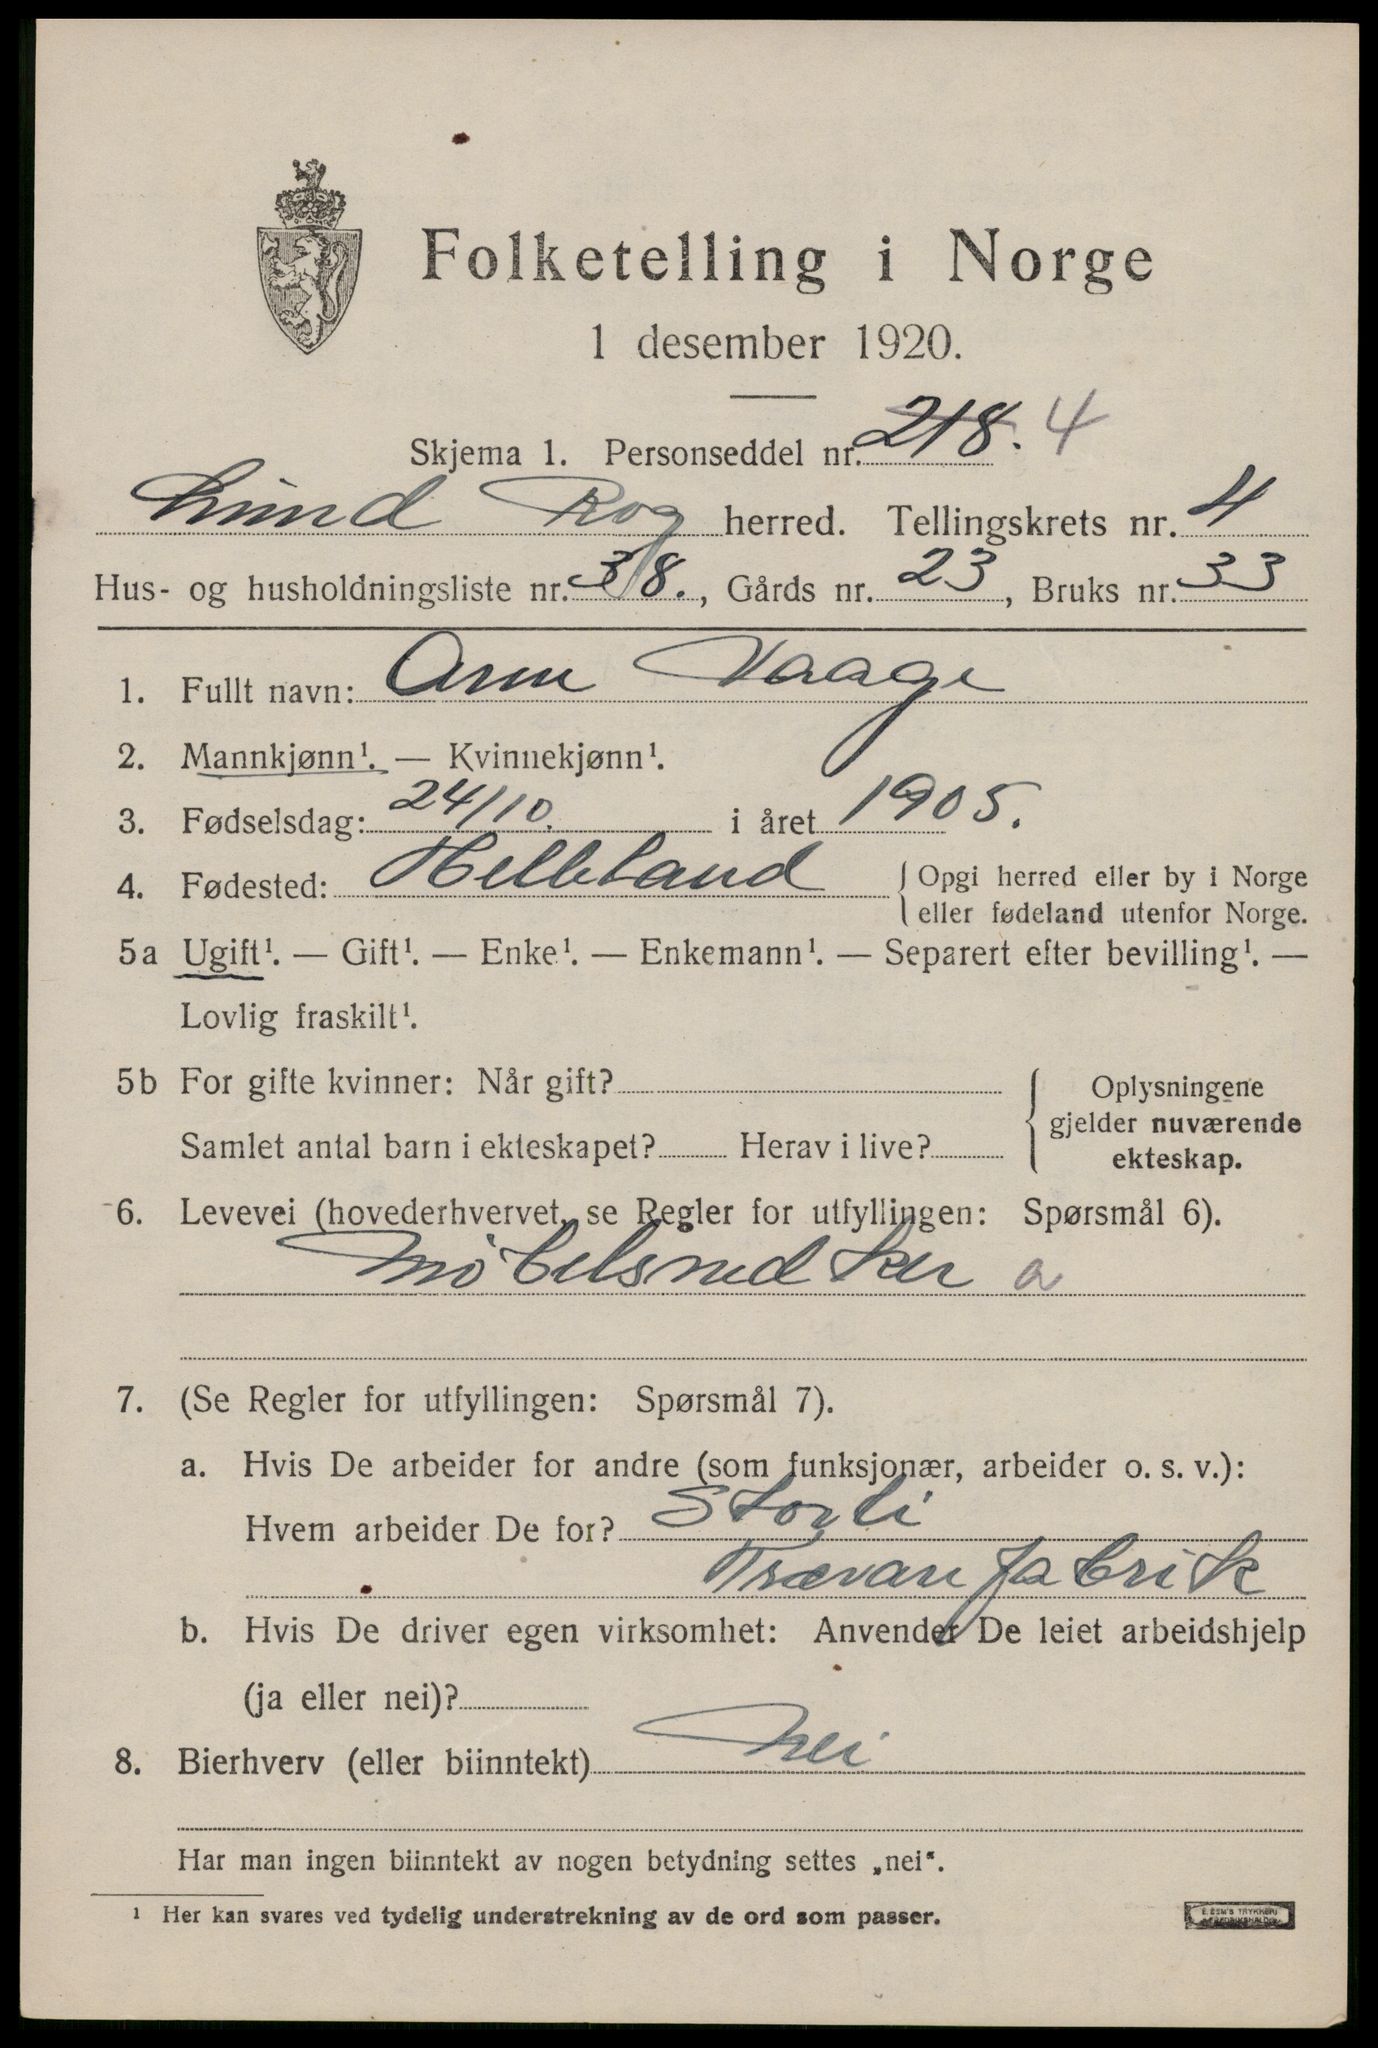 Folketelling i Norge
1 desember 1920.
Skjema 1. Personseddel nr. 218. 4
Lund Rog herred. Tellingskrets nr. 4
Hus- og husholdningsliste nr. 38., Gårds nr. 23, Bruks nr. 33
1. Fullt navn: Arne Vaage
2. Mannkjønn¹. — Kvinnekjønn¹.
3. Fødselsdag: 24/10. i året 1905.
4. Fødested: Helleland { Opgi herred eller by i Norge
eller fødeland utenfor Norge.
5a Ugift¹. — Gift¹. — Enke¹. — Enkemann¹. — Separert efter bevilling¹. —
Lovlig fraskilt¹.
5b For gifte kvinner: Når gift? { Oplysningene
gjelder nuværende
Samlet antal barn i ekteskapet? Herav i live?
ekteskap.
6. Levevei (hovederhvervet, se Regler for utfyllingen: Spørsmål 6).
Møbelsnedker a
7. (Se Regler for utfyllingen: Spørsmål 7).
a. Hvis De arbeider for andre (som funksjonær, arbeider o. s. v.):
Hvem arbeider De for? Storli
Trævarefabrik
b. Hvis De driver egen virksomhet: Anvender De leiet arbeidshjelp
(ja eller nei)?
8. Bierhverv (eller biinntekt) Nei
Har man ingen biinntekt av nogen betydning settes „nei“.
¹ Her kan svares ved tydelig understrekning av de ord som passer.
E. SEM'S TRYKKERI
FREDRIKSHALD